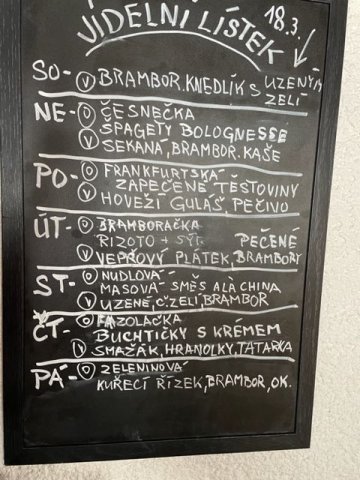 JÍDELNÍ LÍSTEK
18.3.
SO- V BRAMBOR. KNEDLÍK S UZENÝM
ZELÍ
NE- O ČESNEČKA
SPAGETY BOLOGNESSE
V SEKANÁ, BRAMBOR. KAŠE
PO- O FRANKFURTSKÁ
ZAPEČENÉ TĚSTOVINY
V HOVĚZÍ GULÁŠ, PEČIVO
ÚT- O BRAMBORAČKA
RIZOTO + SÝR
V VEPŘOVÝ PLÁTEK, PEČENÉ BRAMBORY
ST- O NUDLOVÁ
MASOVÁ SMĚS ALA CHINA
V UZENÉ, Č. ZELÍ, BRAMBOR
ČT- O FAZOLAČKA
BUCHTIČKY S KRÉMEM
V SMAŽÁK, HRANOLKY, TATARKA
PÁ- O ZELENINOVÁ
KUŘECÍ ŘÍZEK, BRAMBOR, OK.